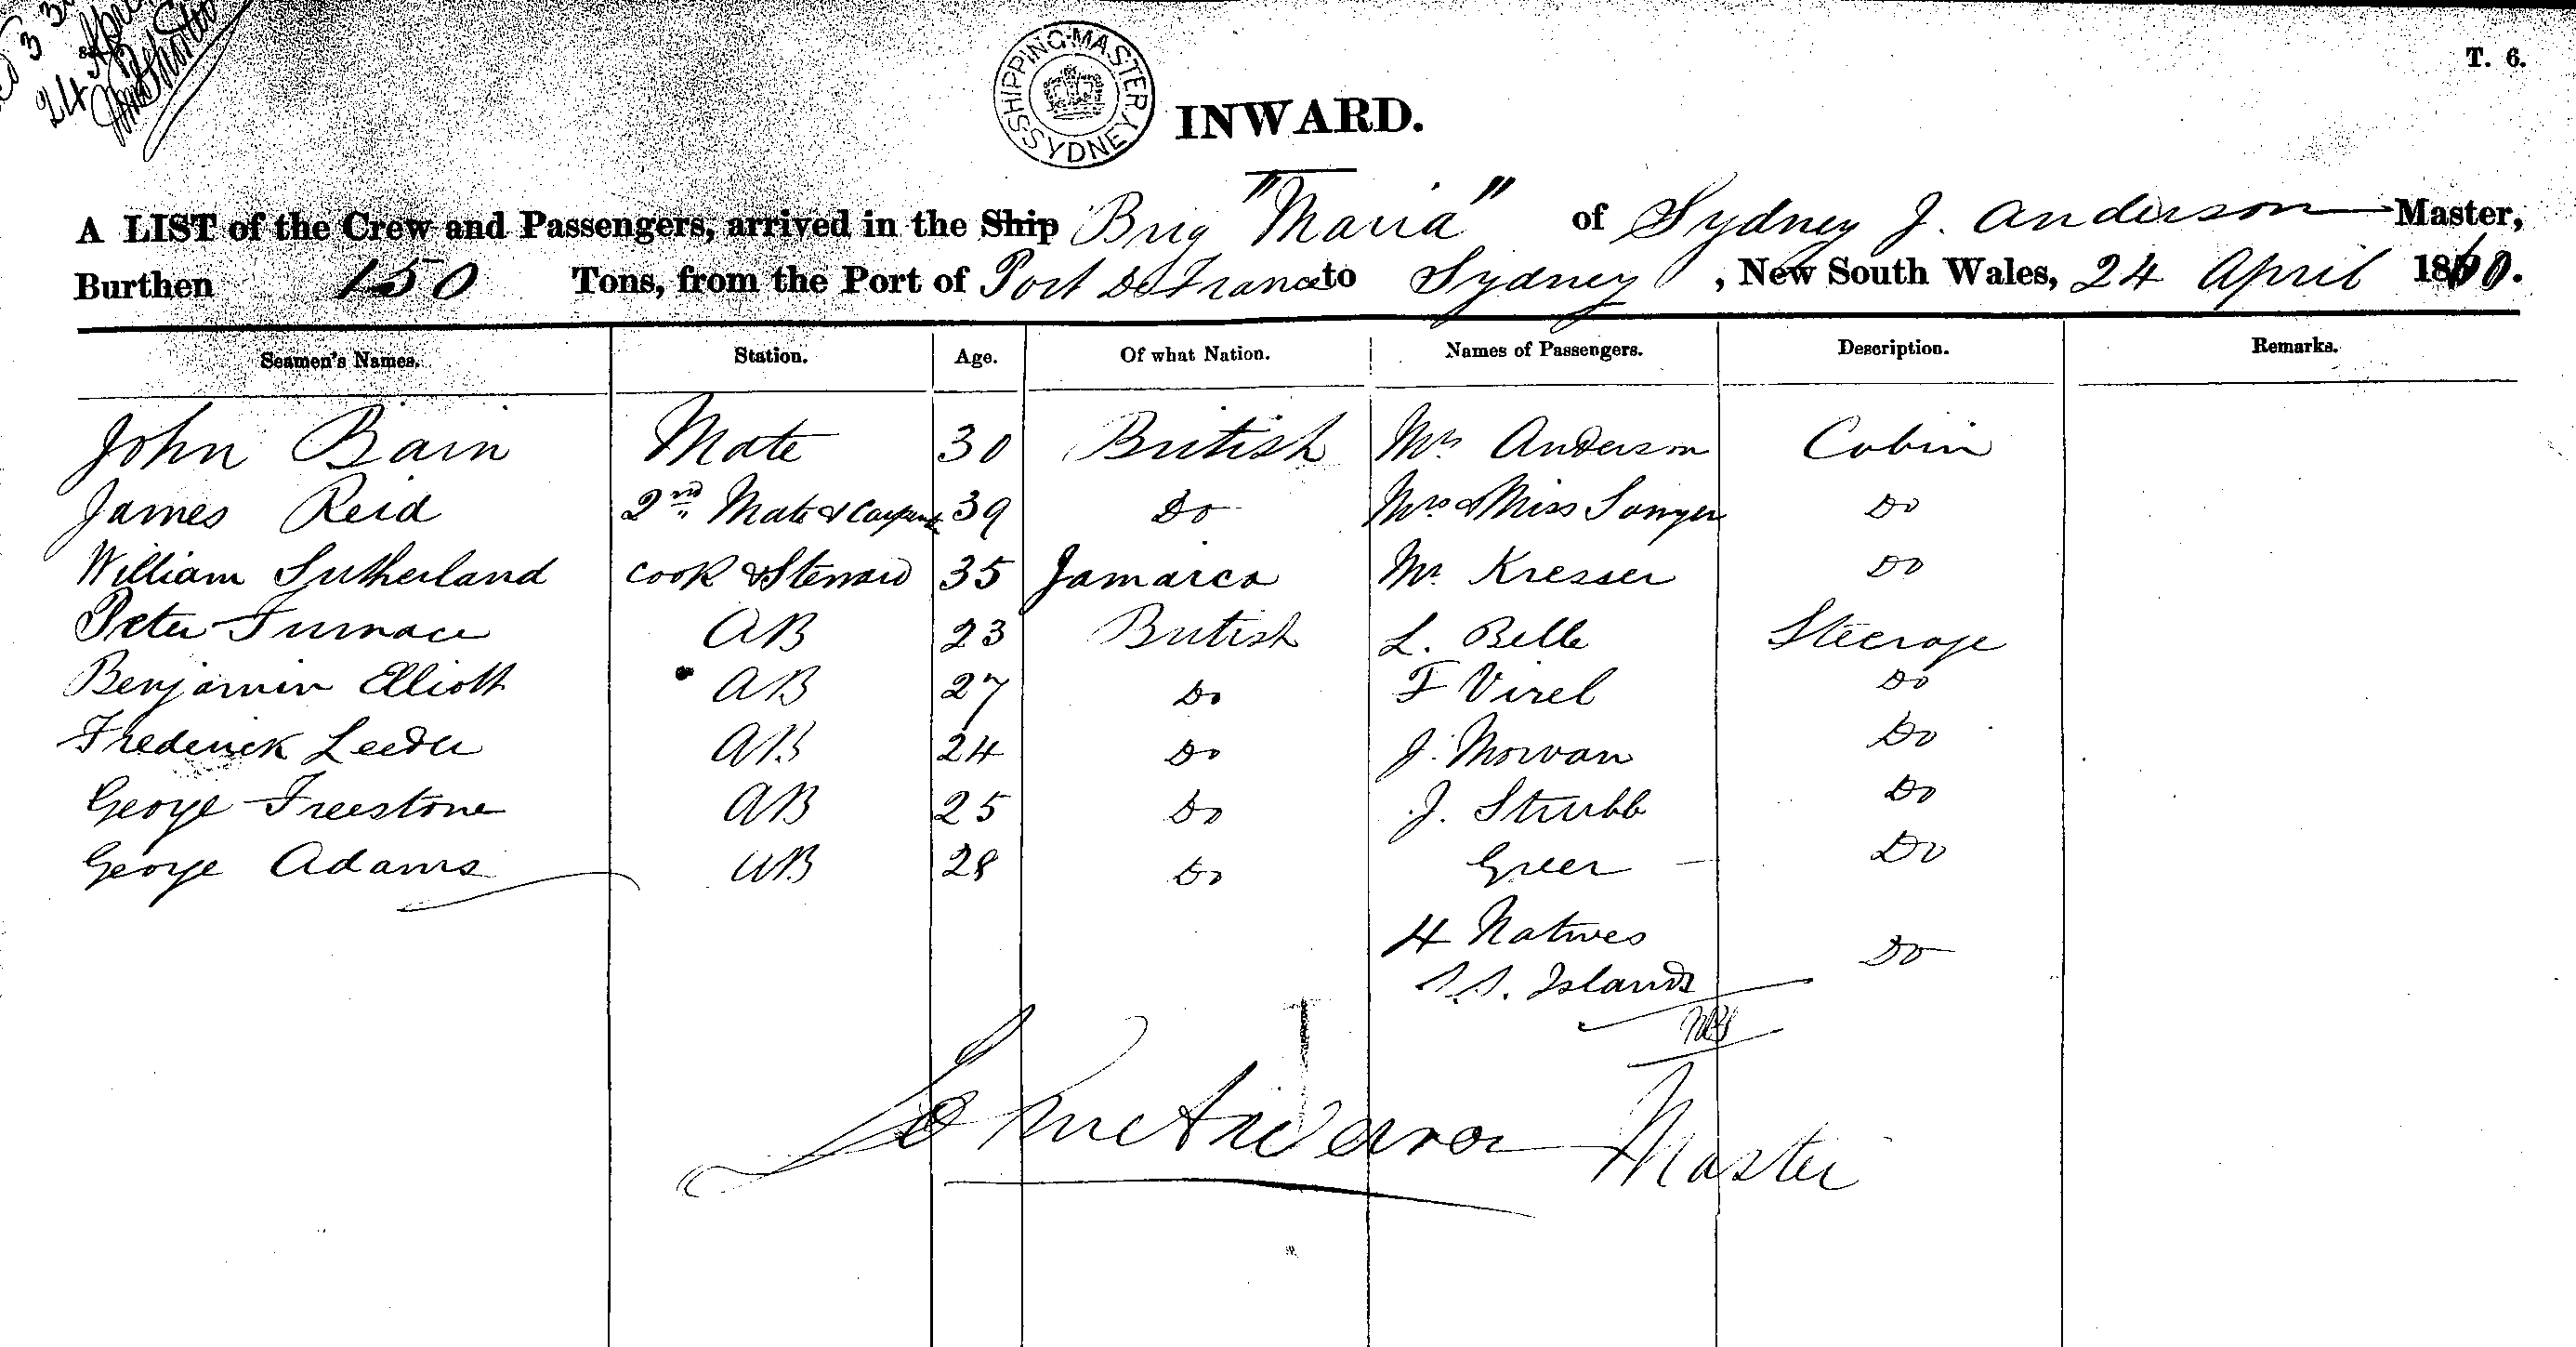 24 April
SHIPPING MASTER SYDNEY
T. 6.
INWARD.
A LIST of the Crew and Passengers, arrived in the Ship Brig "Maria" of Sydney J. Anderson Master,
Burthen 150 Tons, from the Port of Port De France to Sydney, New South Wales, 24 April 18
Seamen's Names. Station. Age. Of what Nation. Names of Passengers. Description. Remarks.
John Bain Mate 30 British Mrs Anderson Cabin
James Reid 2nd Mate & 39 Do Mrs & Miss Sawyer Do
William Sutherland Cook & Steward 35 Jamaica Mr Kresser Do
Peter Furnace AB 23 British L. Belle Steerage
Benjamin Elliott AB 27 Do F Virel Do
Frederick Leeder AB 24 Do J. Morvan Do
George Freestone AB 25 Do J. Strubb Do
George Adams AB 28 Do Greer Do
4 Natives Do
S.S. Islands
Master